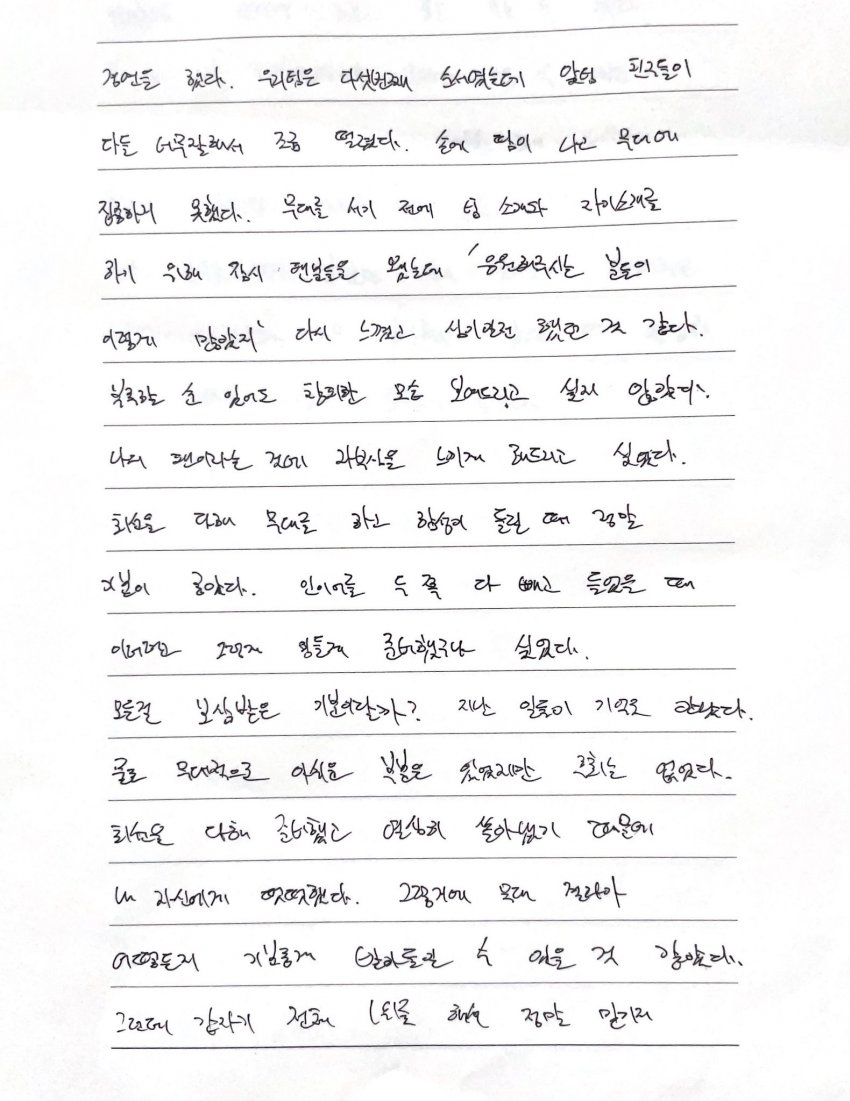 경연을 했다. 우리팀은 다섯번째 순서였는데 앞팀 친구들이
다들 너무잘해서 조금 떨렸다. 손에 땀이 나고 무대에
집중하지 못했다. 무대를 서기 전에 팀 소개와 자기소개를
하기 위해 잠시 팬분들을 뵀는데 '응원해주시는 분들이
이렇게 많았지' 다시 느꼈고 심기일전 했던 것 같다.
부족하는 순 있어도 창피한 모습 보여드리고 싶지 않았다.
나의 팬이라는 것에 자부심을 느끼게 해드리고 싶었다.
최선을 다해 무대를 하고 함성이 들릴 때 정말
기분이 좋았다. 인이어를 두 쪽 다 빼고 들었을 때
이러려고 그렇게 힘들게 준비했구나 싶었다.
모든걸 보상받은 기분이랄까? 지난 일들이 기억도 안났다.
물론 무대적으로 아쉬운 부분은 있었지만 후회는 없었다.
최선을 다해 준비했고 열심히 쏟아냈기 때문에
내 자신에게 떳떳했다. 그렇기에 무대 결과가
어떻든지 기분좋게 받아들일 수 있을 것 같았다.
그런데 갑자기 전체 1위를 해서 정말 믿기지